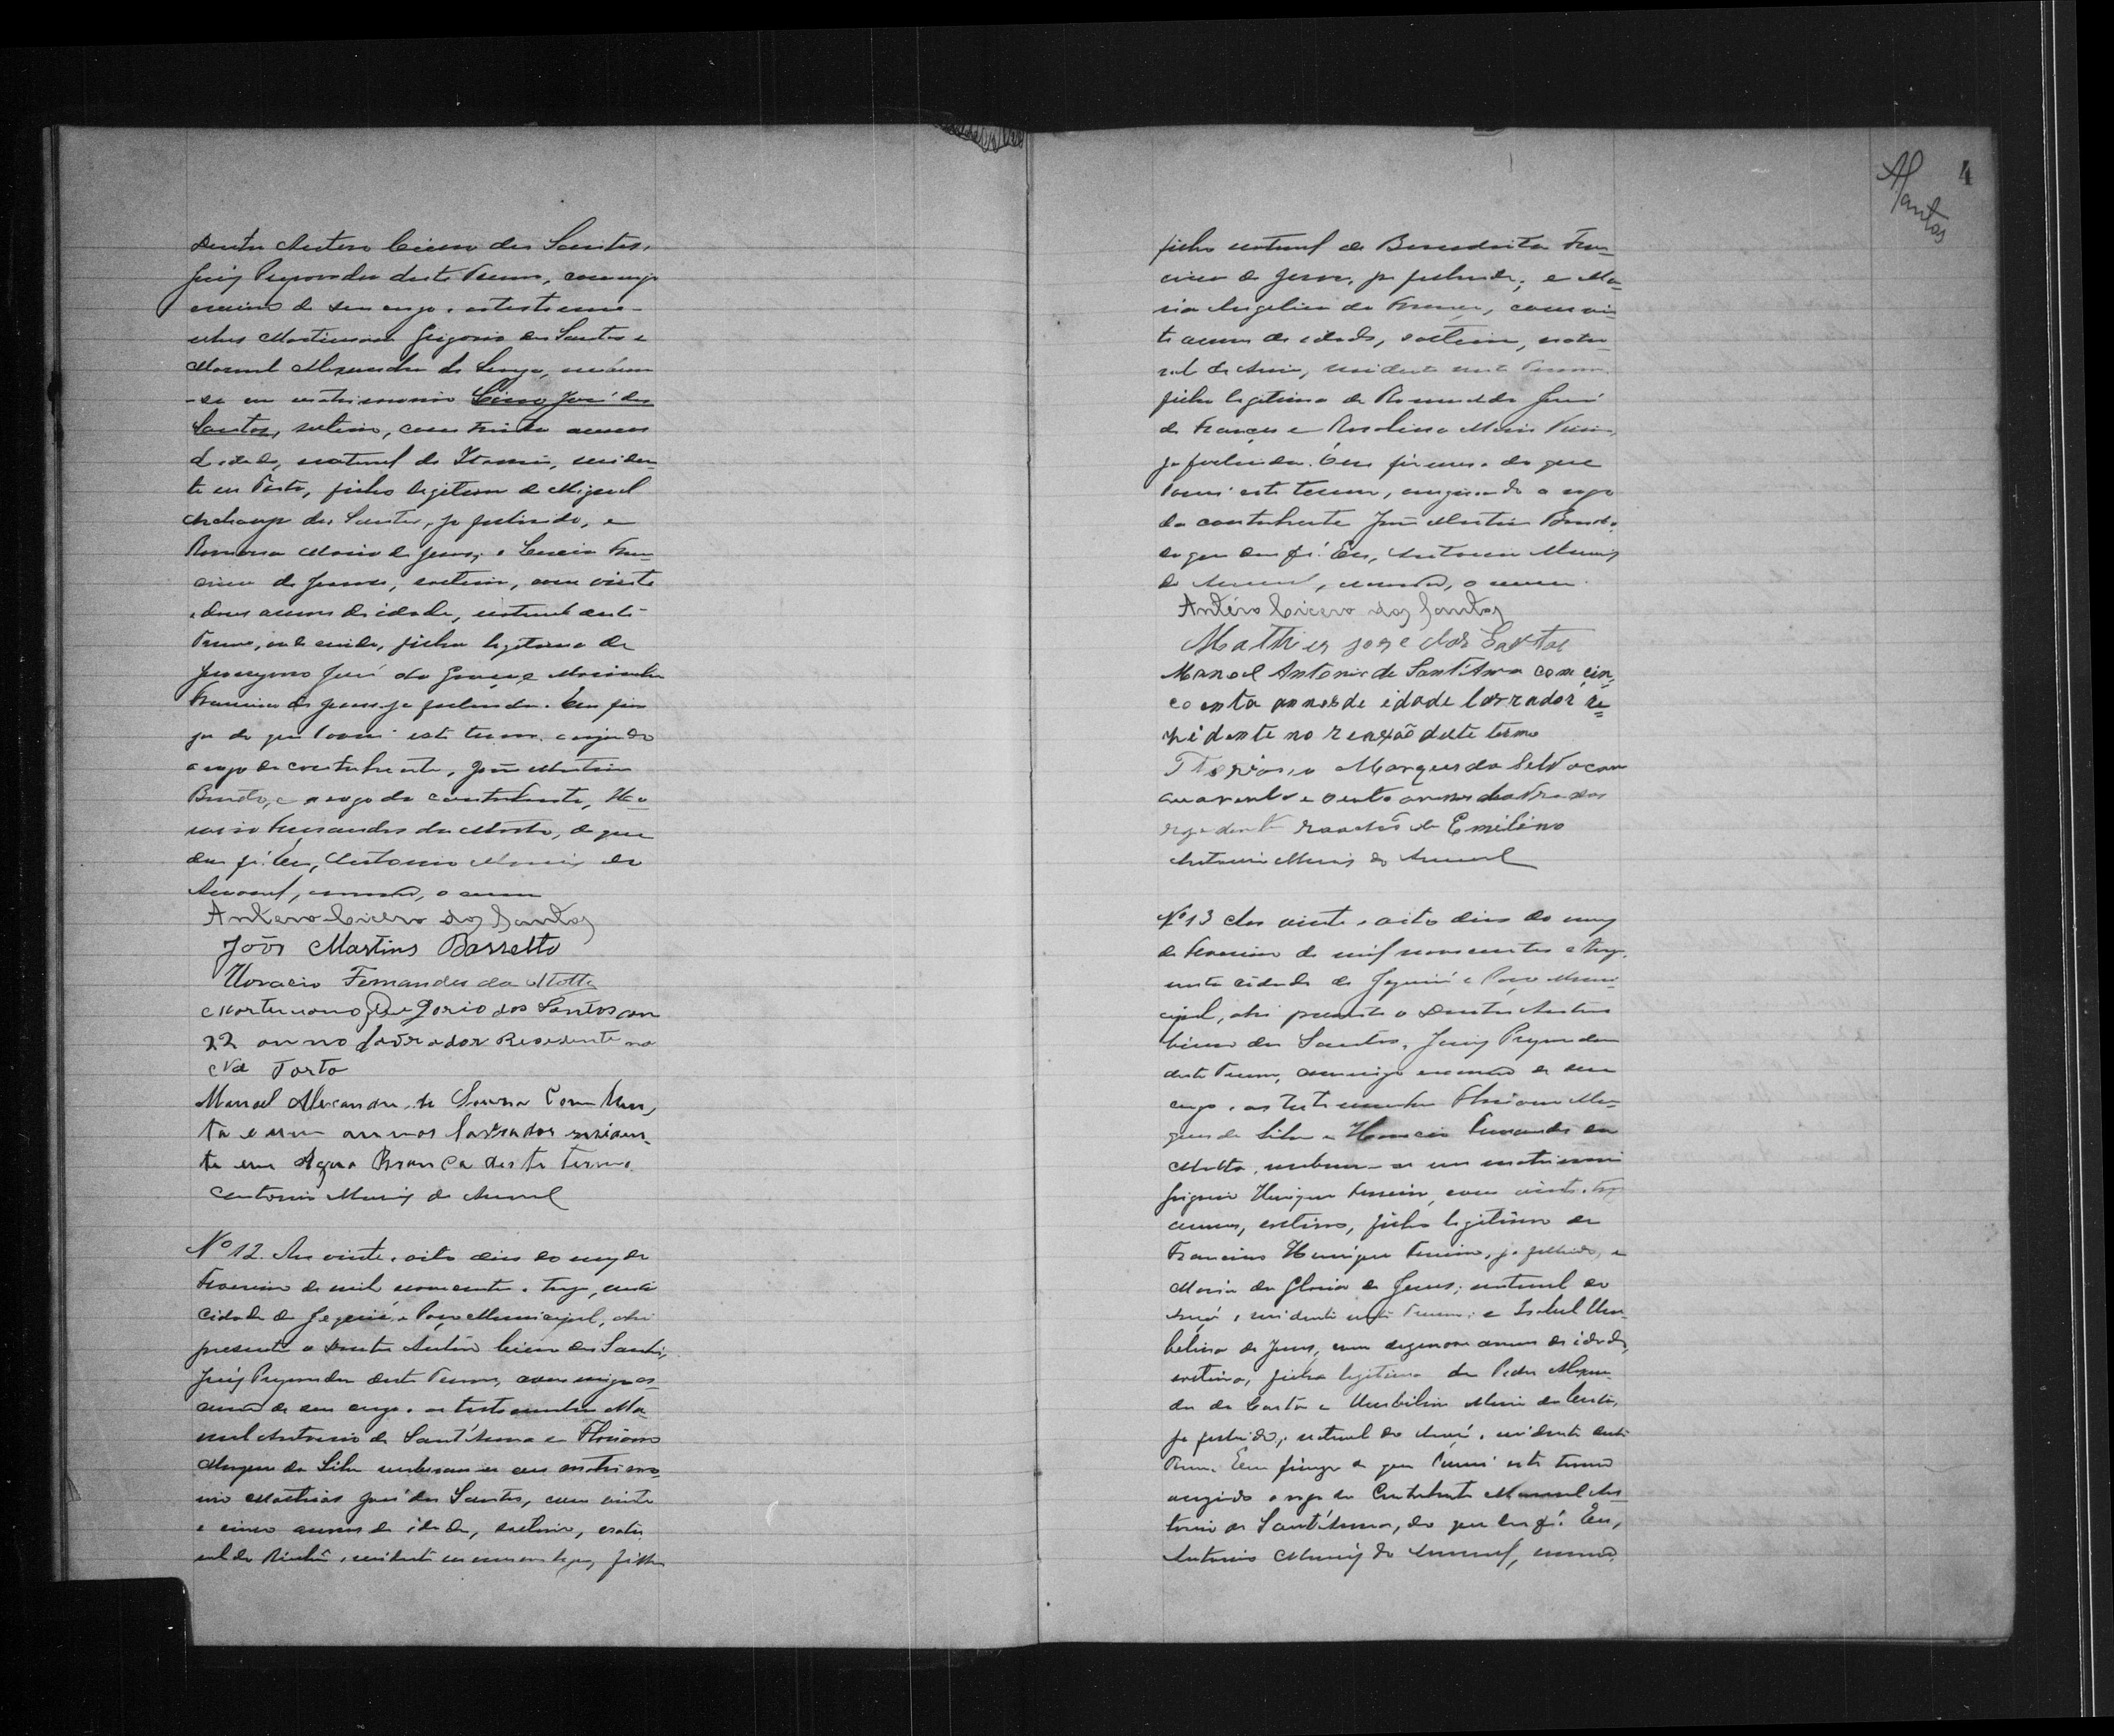 Doutor Antero Cicero dos Santos,
Juiz Preparador deste Termo, commigo
escrivão de seu cargo, as testemu-
nhas Martiniano Gregorio dos Santos e
Manoel Alexandre de Souza, uniram
-se em matrimonio Cicero José dos
Santos, solteiro, com trinta annos
de idade, natural de residen-
te em Torto, filho legitimo de Miguel
Archanjo dos Santos, ja fallecido, e
Romana Maria de Jesus; e Fran-
cisca de Jesus, solteira, com vinte
e dous annos de idade, natural deste
Termo, onde reside, filha legitima de
Jeronymo José da e
Francisca de Jesus ja fallecida. Em fir
ga do que lavrei este termo, assignando
a rogo da contrahente, João Martins
Barretto, e a rogo do contrahente, Ho-
racio Fernandes da Motta, do que
dou fé. Eu, Antonio Muniz do
Amaral, escrivão, o escrevi
Antero Cicero dos Santos
João Martins Barretto
Horacio Fernandes da Motta
Marteniano Gregorio dos Santos con
22 anno lavrador Residente no
Torto
Manoel Alexandre de Souza Com trin,
ta e um annos lavrador residen-
te em Agua Branca deste termo
Antonio Muniz do Amaral
Nº 12. Aos vinte e oito dias do mez de
Fevereiro de mil novecentos e treze, nesta
Cidade de Jequié, e Paço Municipal, ahi
presente o Doutor Antero Cicero dos Santos,
Juiz Preparador deste Termo, commigo es-
crivão de seu cargo, as testemunhas Ma-
noel Antonio de Sant'Anna e Floriano
Marques da Silva receberam-se em matrimo-
nio Mathias José dos Santos, com vinte
e cinco annos de idade, solteiro, natu
ral do residente em filho
4
Santos
filho natural de Benedicta Fran-
cisca de Jesus, ja fallecida; e Ma-
ria Angelica de com vin-
te annos de idade, solteira, natu-
ral de residente neste Termo
filha legitima de Romualdo José
de e Maria
ja fallecida. Em firmeza do que
lavrei este termo, assignando a rogo
da contrahente João Martins Barretto,
do que dou fé. Eu, Antonio Muniz
do Amaral, escrivão, o escrevi.
Antéro Cicero dos Santos
Mathies jose dos Santos
Manoel Antonio de SantAnna com cin,
coenta annos de idade lavrador re=
zidente no deste termo
Marques da Silva com
quarenta e oento annos lavrador
de Emiliano
Antonio Muniz do Amaral
Nº 13 Aos vinte e oito dias do mez
de Fevereiro de mil novecentos e treze,
nesta cidade de Jequié e Paço Muni-
cipal, ahi presente o Doutor Antero
Cicero dos Santos, Juiz Preparador
deste Termo, commigo escrivão de seu
cargo, as testemunhas Floriano Mar-
ques da Silva e Horacio Fernandes da
Motta, receberam-se em matrimonio
Gregorio Henrique Ferreira, com vinte e tres
annos, solteiro, filho legitimo de
Francisco Henrique Ferreira, ja fallecido, e
Maria da Gloria de Jesus, natural de
residente neste Termo; e Isabel Um-
belina de Jesus, com dezenove annos de idade,
solteira, filha legitima de Pedro Alexan-
dre da Costa e Umbelina Maria da Costa,
ja fallecida, natural de residente deste
Termo. Em firmeza do que lavrei este termo
assignando a rogo da Contrahente Manoel An-
tonio de Sant'Anna, do que dou fé. Eu,
Antonio Muniz do Amaral, escrivão,